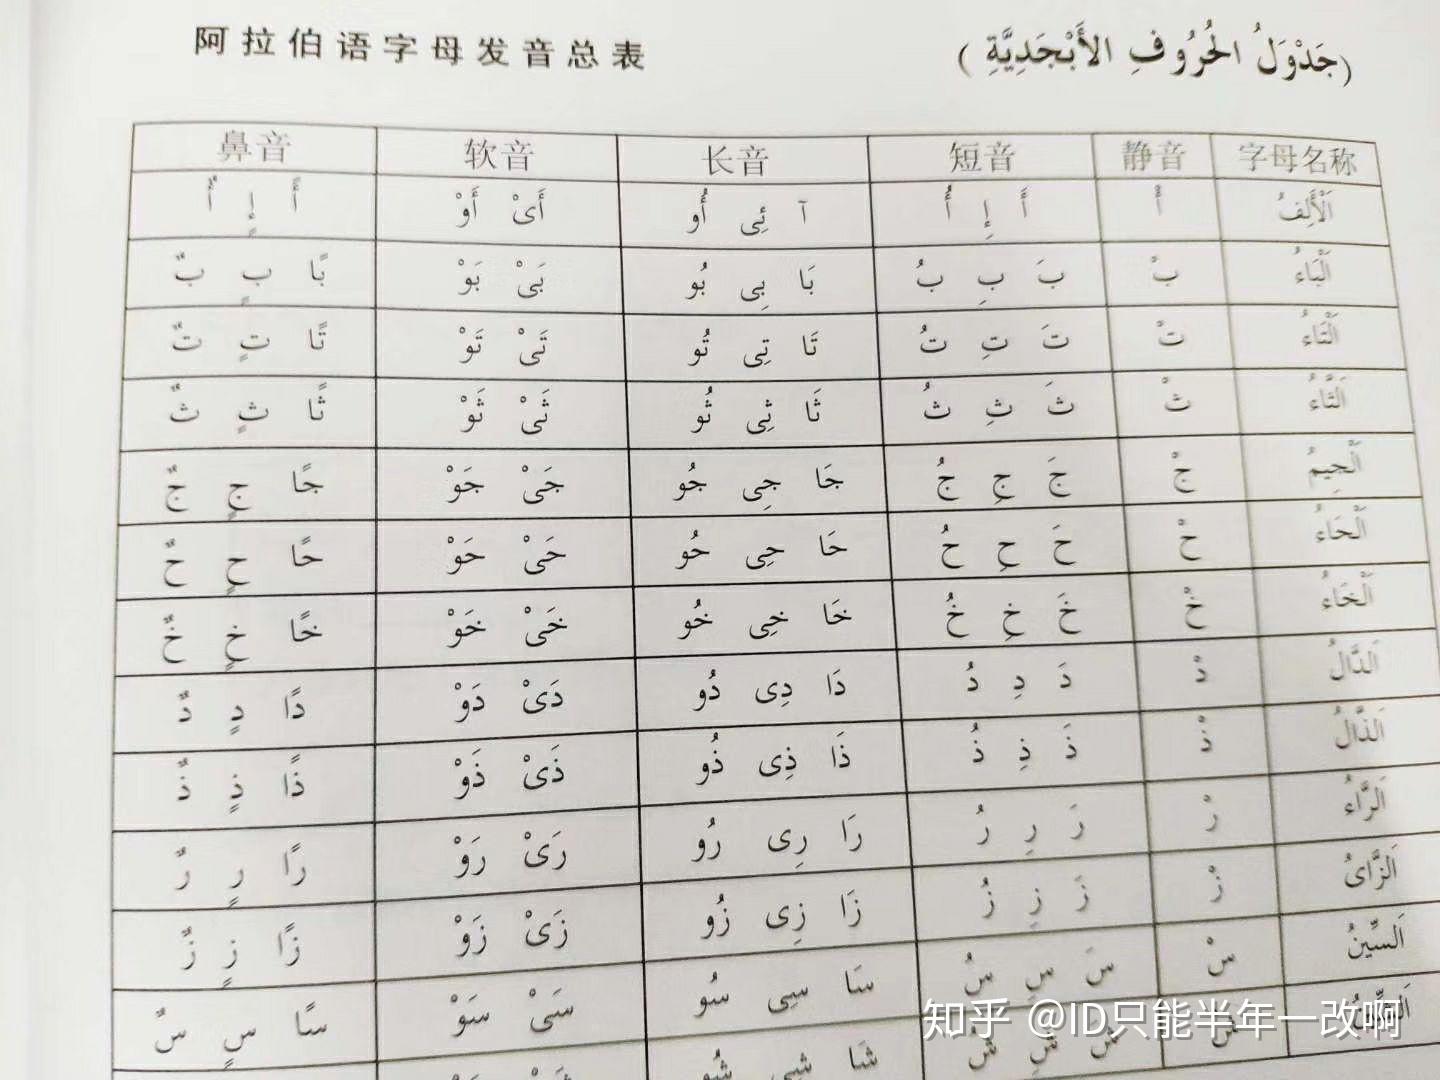 阿拉伯语字母发音总表 (جَدْوَلُ الحُرُوفِ الأَبْجَدِيَّةِ)
鼻音 软音 长音 短音 静音 字母名称
اَلْأَلِفُ أْ أَ إِ أُ آ ئِى أُو أَىْ أَوْ أً إٍ أٌ
اَلْبَاءُ بْ بَ بِ بُ بَا بِى بُو بَىْ بَوْ بًا بٍ بٌ
اَلتَّاءُ تْ تَ تِ تُ تَا تِى تُو تَىْ تَوْ تًا تٍ تٌ
اَلثَّاءُ ثْ ثَ ثِ ثُ ثَا ثِى ثُو ثَىْ ثَوْ ثًا ثٍ ثٌ
اَلْجِيمُ جْ جَ جِ جُ جَا جِى جُو جَىْ جَوْ جًا جٍ جٌ
اَلْحَاءُ حْ حَ حِ حُ حَا حِى حُو حَىْ حَوْ حًا حٍ حٌ
اَلْخَاءُ خْ خَ خِ خُ خَا خِى خُو خَىْ خَوْ خًا خٍ خٌ
اَلدَّالُ دْ دَ دِ دُ دَا دِى دُو دَىْ دَوْ دًا دٍ دٌ
اَلذَّالُ ذْ ذَ ذِ ذُ ذَا ذِى ذُو ذَىْ ذَوْ ذًا ذٍ ذٌ
اَلرَّاءُ رْ رَ رِ رُ رَا رِى رُو رَىْ رَوْ رًا رٍ رٌ
اَلزَّاىُ زْ زَ زِ زُ زَا زِى زُو زَىْ زَوْ زًا زٍ زٌ
اَلسِّينُ سْ سَ سِ سُ سَا سِى سُو سَىْ سَوْ سًا سٍ سٌ
شَا شِى شُو
知乎 @ID只能半年一改啊